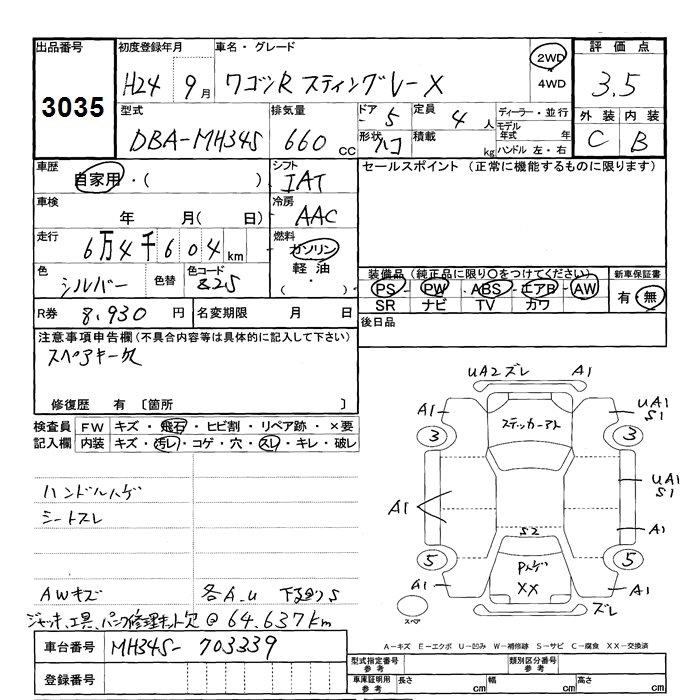 出品番号 初度登録年月 車名・グレード 2WD 4WD 評価点
3035 H24 9月 ワゴンR スティングレー X 3.5
型式 排気量 ドア 定員 ディーラー・並行 外装 内装
DBA-MH34S 660cc 5 4人 モデル年式 年 C B
形状 ハコ 積載 kg ハンドル 左・右
車歴 自家用・( ) シフト IAT セールスポイント (正常に機能するものに限ります)
車検 年 月( 日) 冷房 AAC
走行 6万4千604km 燃料 ガソリン 軽油 ( ・ )
色 シルバー 色替 色コード 825
装備品(純正品に限り○をつけてください) 新車保証書
PS PW ABS エアB AW 有・無
SR ナビ TV カワ
R券 8,930円 名変期限 月 日 後日品
注意事項申告欄(不具合内容等は具体的に記入して下さい)
スペアキー欠
修復歴 有 [箇所 ]
検査員 FW キズ・飛石・ヒビ割・リペア跡・×要
記入欄 内装 キズ・汚レ・コゲ・穴・スレ・キレ・破レ
ハンドルハゲ
シートスレ
AWキズ 各A.u 下廻りS
ジャッキ、工具、パンク修理キット欠 @64,637km
UA2ズレ A1
A1 UA1 S1
ステッカーアト
3 3
A1 UA1 S1
S2 A1
5 Pハゲ XX 5
A1 A1
スペア ズレ
A-キズ E-エクボ U-凹み W-補修跡 S-サビ C-腐食 XX-交換済
車台番号 MH34S-703339
登録番号
型式指定番号 参考 類別区分番号 参考
車庫証明用 参考 長さ cm 幅 cm 高さ cm